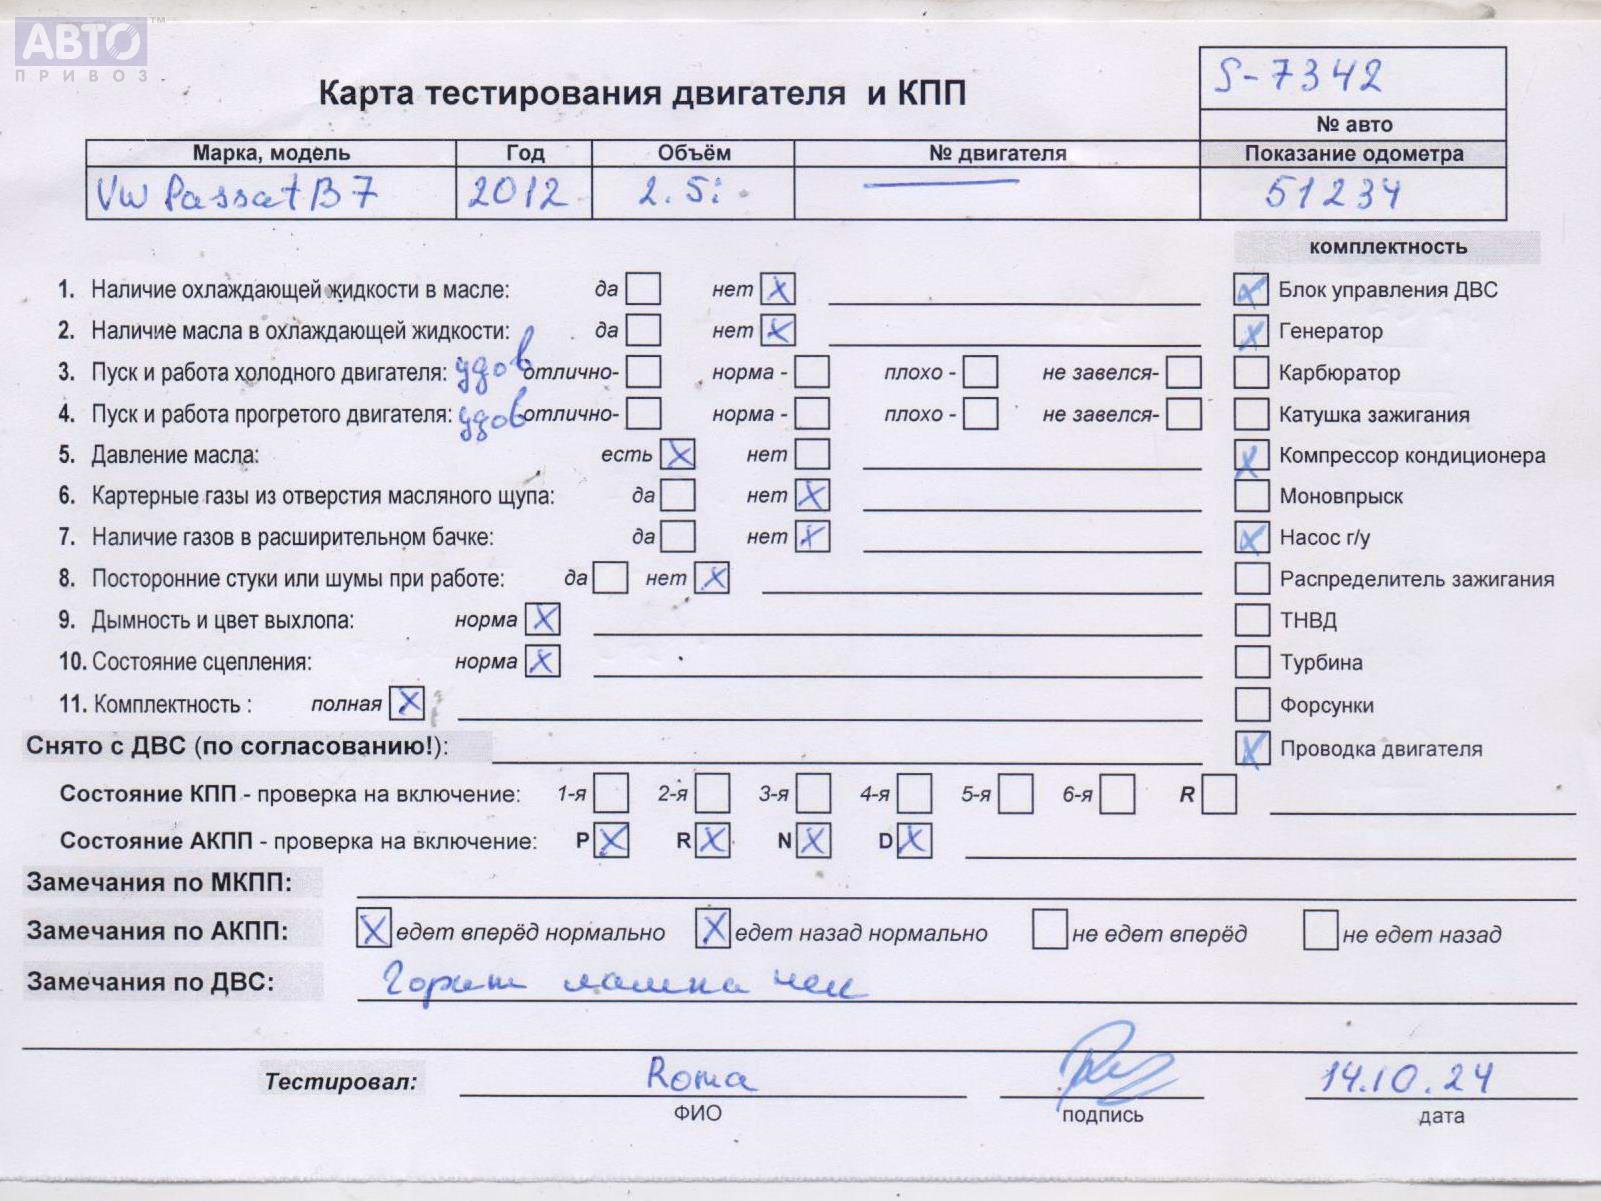 АВТО™
ПРИВОЗ
Карта тестирования двигателя и КПП
S-7342
№ авто
Марка, модель Год Объём № двигателя Показание одометра
VW Passat B7 2012 2.5i — 51234
комплектность
1. Наличие охлаждающей жидкости в масле: да нет X Блок управления ДВС
2. Наличие масла в охлаждающей жидкости: да нет X Генератор
3. Пуск и работа холодного двигателя: удов отлично- норма - плохо - не завелся- Карбюратор
4. Пуск и работа прогретого двигателя: удов отлично- норма - плохо - не завелся- Катушка зажигания
5. Давление масла: есть X нет X Компрессор кондиционера
6. Картерные газы из отверстия масляного щупа: да нет X Моновпрыск
7. Наличие газов в расширительном бачке: да нет X X Насос г/у
8. Посторонние стуки или шумы при работе: да нет X Распределитель зажигания
9. Дымность и цвет выхлопа: норма X ТНВД
10. Состояние сцепления: норма X Турбина
11. Комплектность : полная X Форсунки
Снято с ДВС (по согласованию!): X Проводка двигателя
Состояние КПП - проверка на включение: 1-я 2-я 3-я 4-я 5-я 6-я R
Состояние АКПП - проверка на включение: P X R X N X D X
Замечания по МКПП:
Замечания по АКПП: X едет вперёд нормально X едет назад нормально не едет вперёд не едет назад
Замечания по ДВС: Горит лампа чек
Тестировал: Roma 14.10.24
ФИО подпись дата